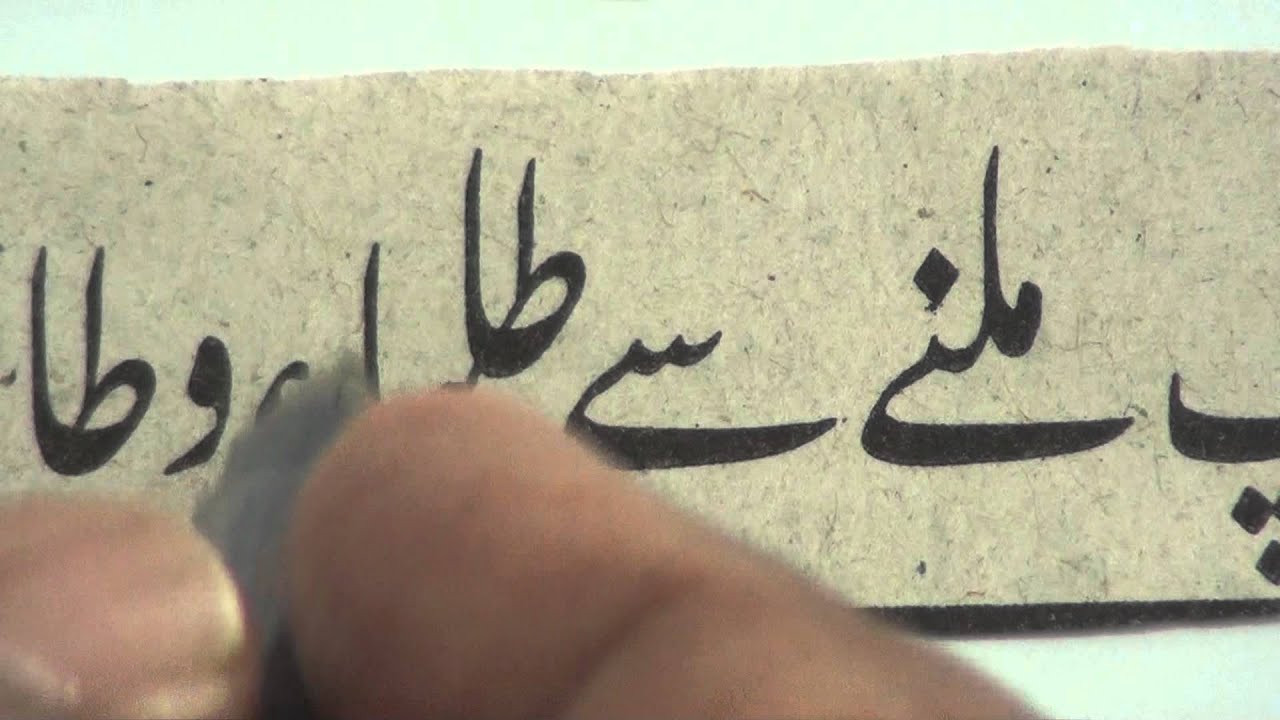 پ ملنے سے طا و طا